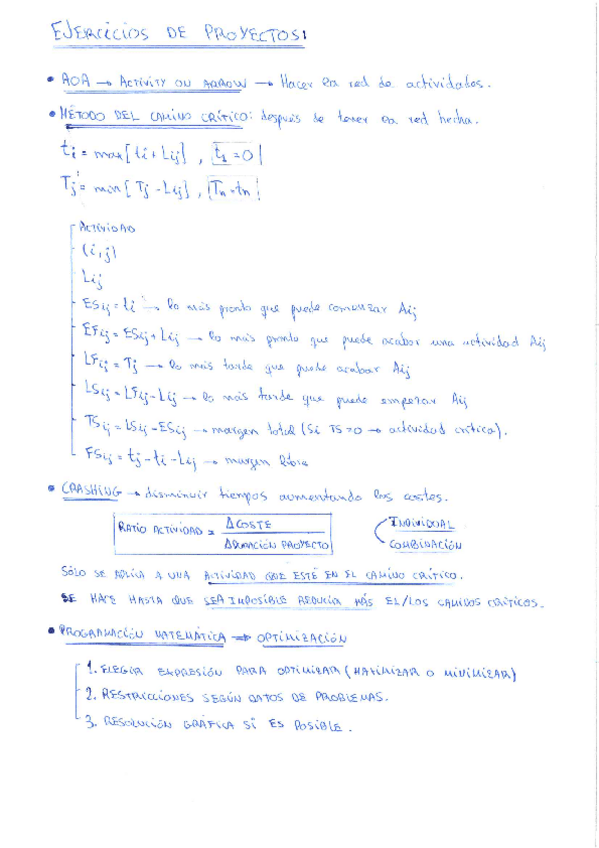 EJERCICIOS DE PROYECTOS:
• AOA → ACTIVITY ON ARROW → Hacer la red de actividades.
• MÉTODO DEL CAMINO CRÍTICO: después de tener la red hecha.
ti = max[ti + Lij] , t1 = 0
Tj = min[Tj - Lij] , Tn = tn
- ACTIVIDAD
- (i,j)
- Lij
- ESij = ti → lo más pronto que puede comenzar Aij
- EFij = ESij + Lij → lo más pronto que puede acabar una actividad Aij
- LFij = Tj → lo más tarde que puede acabar Aij
- LSij = LFij - Lij → lo más tarde que puede empezar Aij
- TSij = LSij - ESij → margen total (Si TS=0 → actividad crítica).
- FSij = tj - ti - Lij → margen libre
• CRASHING → disminuir tiempos aumentando los costes.
RATIO ACTIVIDAD = ΔCOSTE / ΔDURACIÓN PROYECTO
INDIVIDUAL
COMBINACIÓN
SÓLO SE APLICA A UNA ACTIVIDAD QUE ESTÉ EN EL CAMINO CRÍTICO.
SE HACE HASTA QUE SEA IMPOSIBLE REDUCIR MÁS EL/LOS CAMINOS CRÍTICOS.
• PROGRAMACIÓN MATEMÁTICA → OPTIMIZACIÓN
1. ELEGIR EXPRESIÓN PARA OPTIMIZAR (MAXIMIZAR O MINIMIZAR)
2. RESTRICCIONES SEGÚN DATOS DE PROBLEMAS.
3. RESOLUCIÓN GRÁFICA SI ES POSIBLE.